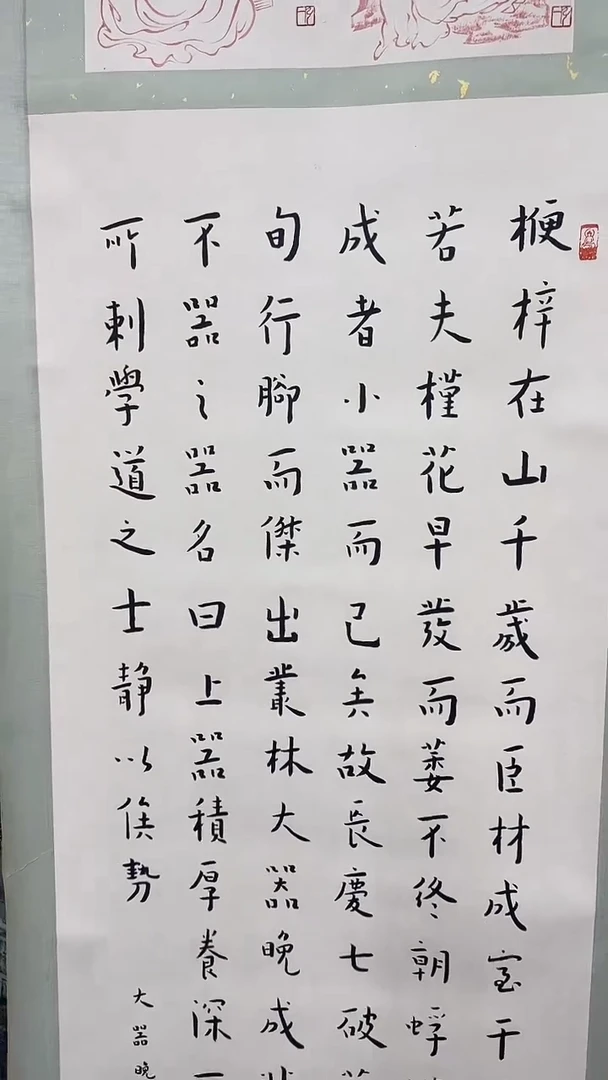 楩梓在山千歲而臣材成室干
若夫槿花早發而萎不終朝蜉
成者小器而已矣故長慶七破
旬行腳而傑出叢林大器晚成
不器之器名曰上器積厚養深
所刺學道之士靜以俟勢
大器晚